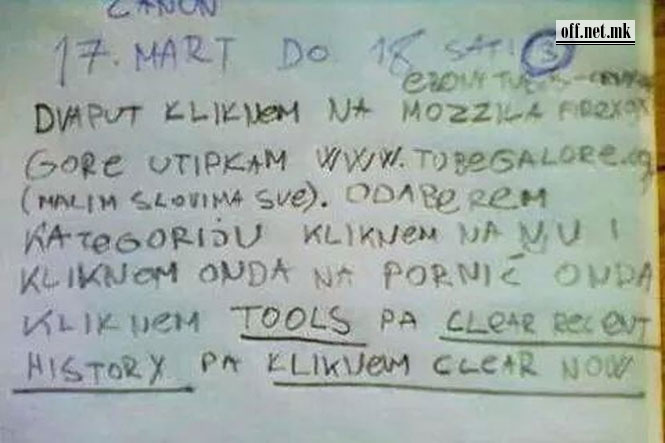 CANON
off.net.mk
17. MART DO 18 SATI 3
EBONY
DVAPUT KLIKNEM NA MOZZILA FIREXOX
GORE UTIPKAM WWW.TUBEGALORE.
(MALIM SLOVIMA SVE). ODABEREM
KATEGORIJU KLIKNEM NA NJU I
KLIKNEM ONDA NA PORNIĆ ONDA
KLIKNEM TOOLS PA CLEAR RECENT
HISTORY PA KLIKNEM CLEAR NOW